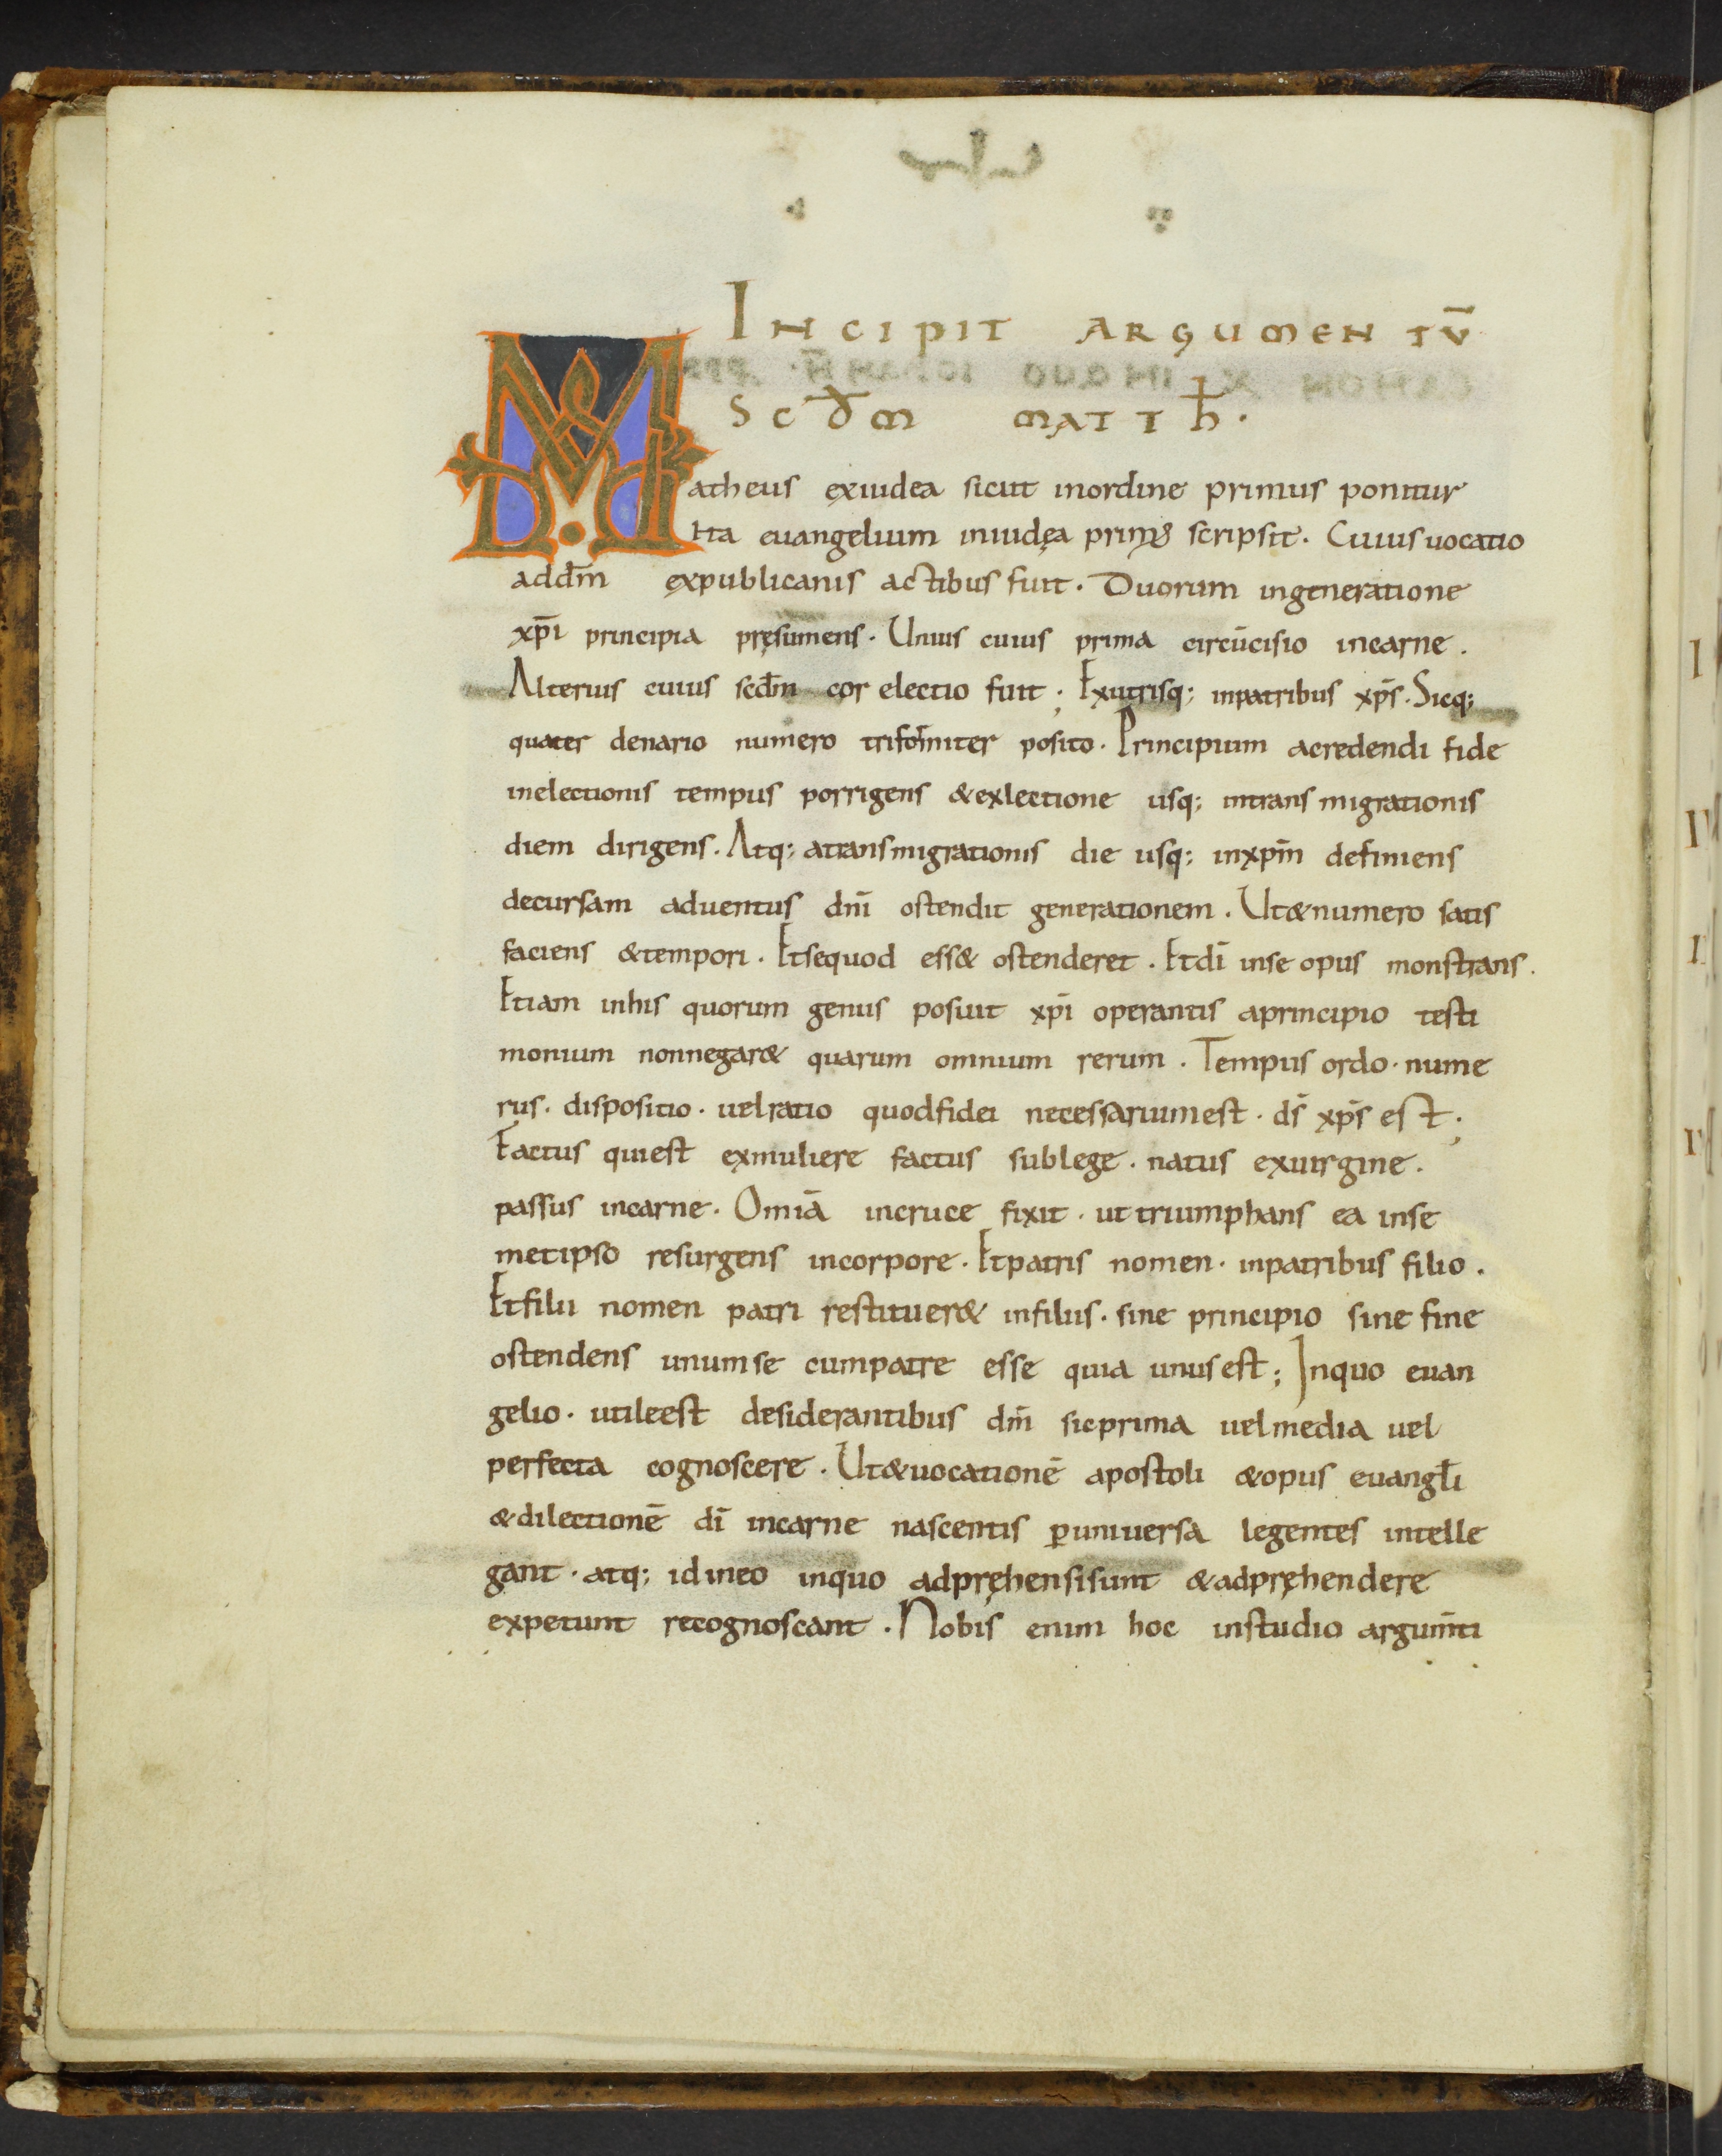 INCIPIT ARGUMENTŪ
SCD̄M MATTH̄·
Matheus exiudea sicut inordine primus ponitur
ita euangelium iniudęa primꝰ scripsit. Cuius uocatio
add̄m expublicanis actibus fuit. Duorum ingeneratione
xp̄i principia pręsumens. Unius cuius prima circūcisio incarne.
Alterius cuius scd̄m cor electio fuit; Exutrisq; inpatribus xp̄s. Sicq;
quater denario numero trifor̄miter posito. Principium acredendi fide
inelectionis tempus porrigens &exlectione usq; intrans migrationis
diem dirigens. Atq; atransmigrationis die usq; inxp̄m definiens
decursam aduentus dn̄i ostendit generationem. Ut&numero satis
faciens &tempori. Etsequod ess& ostenderet. Etdī inse opus monstrans.
Etiam inhis quorum genus posuit xp̄i operantis aprincipio testi
monium nonnegar& quarum omnium rerum. Tempus ordo· nume
rus· dispositio· uelratio quodfidei necessariumest· ds̄ xp̄s est;
Factus quiest exmuliere factus sublege· natus exuirgine.
passus incarne. Omiā incruce fixit· ut triumphans ea inse
metipso resurgens incorpore. Etpatris nomen· inpatribus filio.
Etfilii nomen patri restituer& infiliis· sine principio sine fine
ostendens unumse cumpatre esse quia unusest; Inquo euan
gelio· utileest desiderantibus dm̄ sicprima uelmedia uel
perfecta cognoscere. Ut&uocationē apostoli &opus euangl̄i
&dilectionē dī incarne nascentis ꝑuniuersa legentes intelle
gant· atq; idineo inquo adpręhensisunt &adpręhendere
expetunt recognoscant. Nobis enim hoc instudio argum̄ti